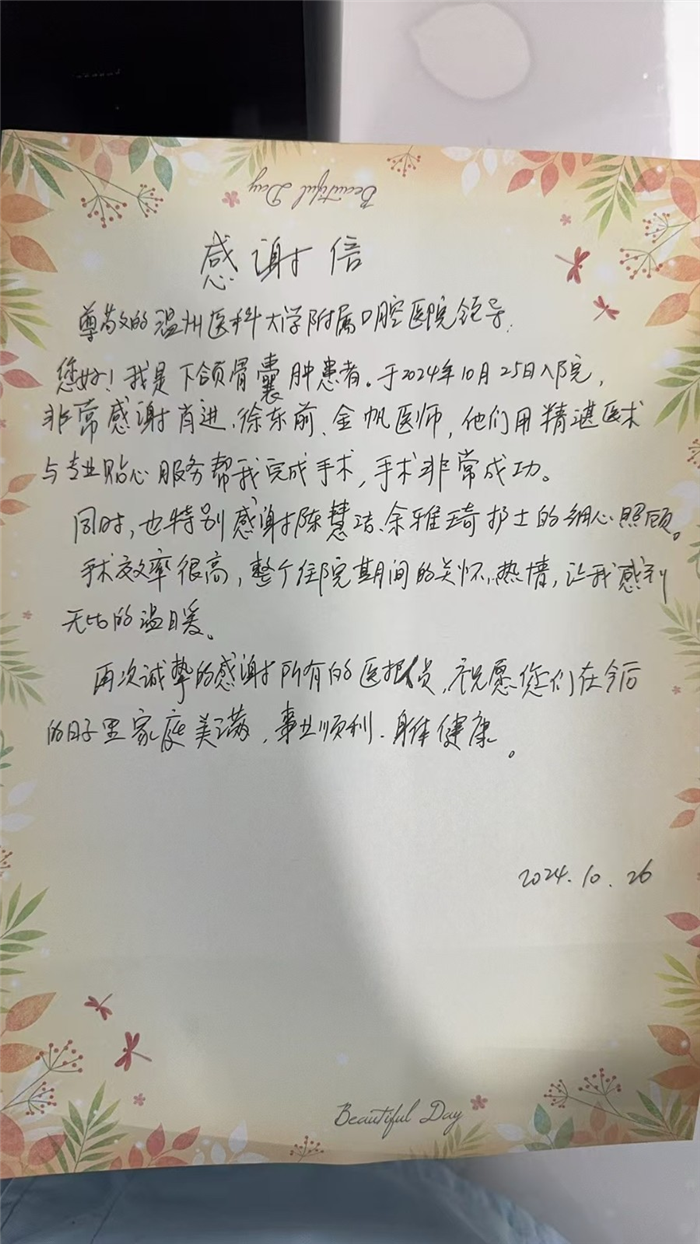 Beautiful Day
感谢信
尊敬的温州医科大学附属口腔医院领导,
您好!我是下颌骨囊肿患者。于2024年10月25日入院,
非常感谢肖进、徐东前、金帆医师,他们用精湛医术
与专业贴心服务帮我完成手术,手术非常成功。
同时,也特别感谢陈慧洁、余雅琦护士的细心照顾。
手术效率很高,整个住院期间的关怀、热情,让我感到
无比的温暖。
再次诚挚的感谢所有的医护人员,祝愿您们在今后
的日子里家庭美满,事业顺利、身体健康。
2024.10.26
Beautiful Day